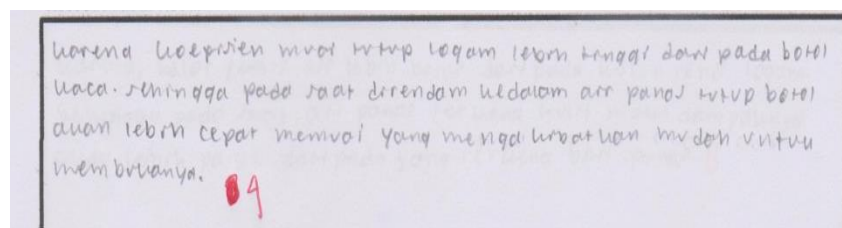 karena koefisien muai tutup logam lebih tinggi dari pada botol
kaca. sehingga pada saat direndam kedalam air panas tutup botol
akan lebih cepat memuai yang mengakibatkan mudah untuk
membukanya.
4